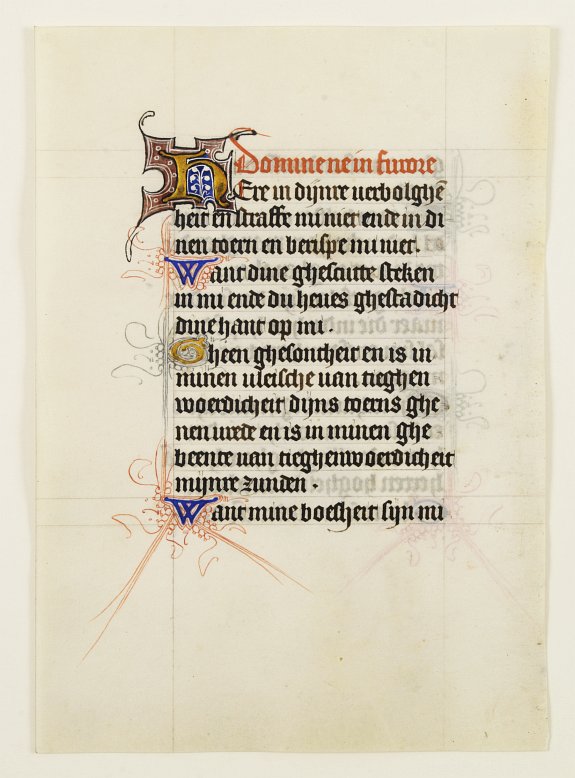 Domine ne in furore
HEre in dijnre verbolghē
heit en straffe mi nier ende in di
nen toern en berispe mi nier.
Want dine ghescutte steken
in mi ende du heves ghestadicht
dine hant op mi.
Gheen ghesontheit en is in
minen vleische van tieghen
woerdicheit dijns toerns ghe
nen vrede en is in minen ghe
beente van tieghenwoerdicheit
mijnre zunden.
Want mine bosheit sijn mi